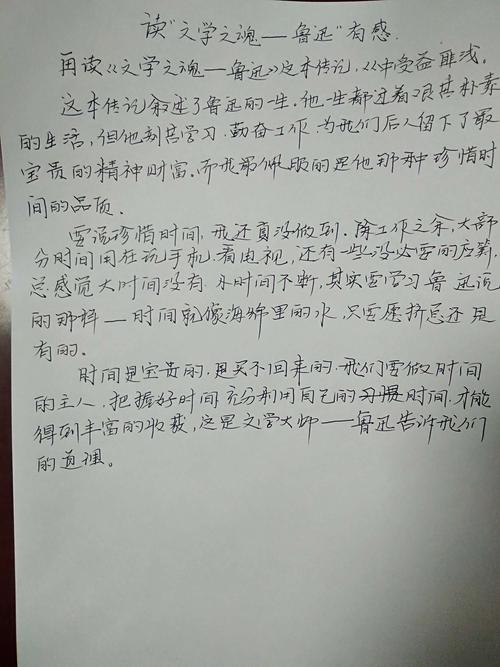 读"文学之魂——鲁迅"有感.
再读《文学之魂——鲁迅》这本传记,从中受益匪浅.
这本传记叙述了鲁迅的一生.他一生都过着艰其朴素
的生活,但他刻苦学习.勤奋工作.为我们后人留下了最
宝贵的精神财富.而我最佩服的是他那种珍惜时
间的品质.
要说珍惜时间,我还真没做到.除工作之余,大部
分时间用在玩手机.看电视,还有一些没必要的应筹,
总感觉大时间没有.小时间不断,其实要学习鲁迅说
的那样—时间就像海绵里的水,只要愿挤总还是
有的.
时间是宝贵的,是买不回来的.我们要做时间
的主人.把握好时间.充分利用自己的时间.才能
得到丰富的收获,这是文学大师——鲁迅告诉我们
的道理。